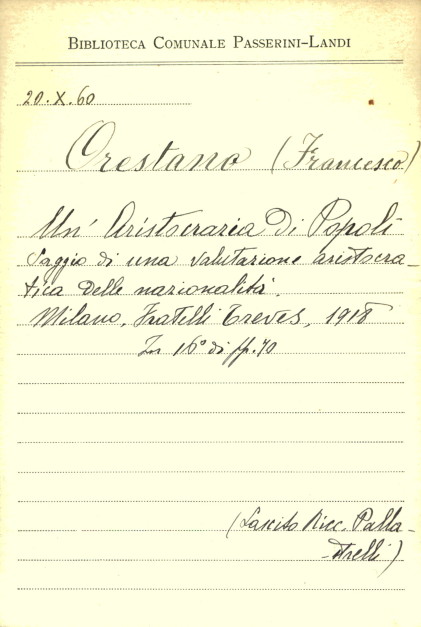 Biblioteca Comunale Passerini-Landi
20.X.60
Orestano (Francesco)
Un' Aristocrazia Di Popoli
Saggio di una valutazione aristocra-
tica delle nazionalità.
Milano, Fratelli Treves, 1918
In 16° di pp. 70
(Lascito Ricc. Palla-
strelli)